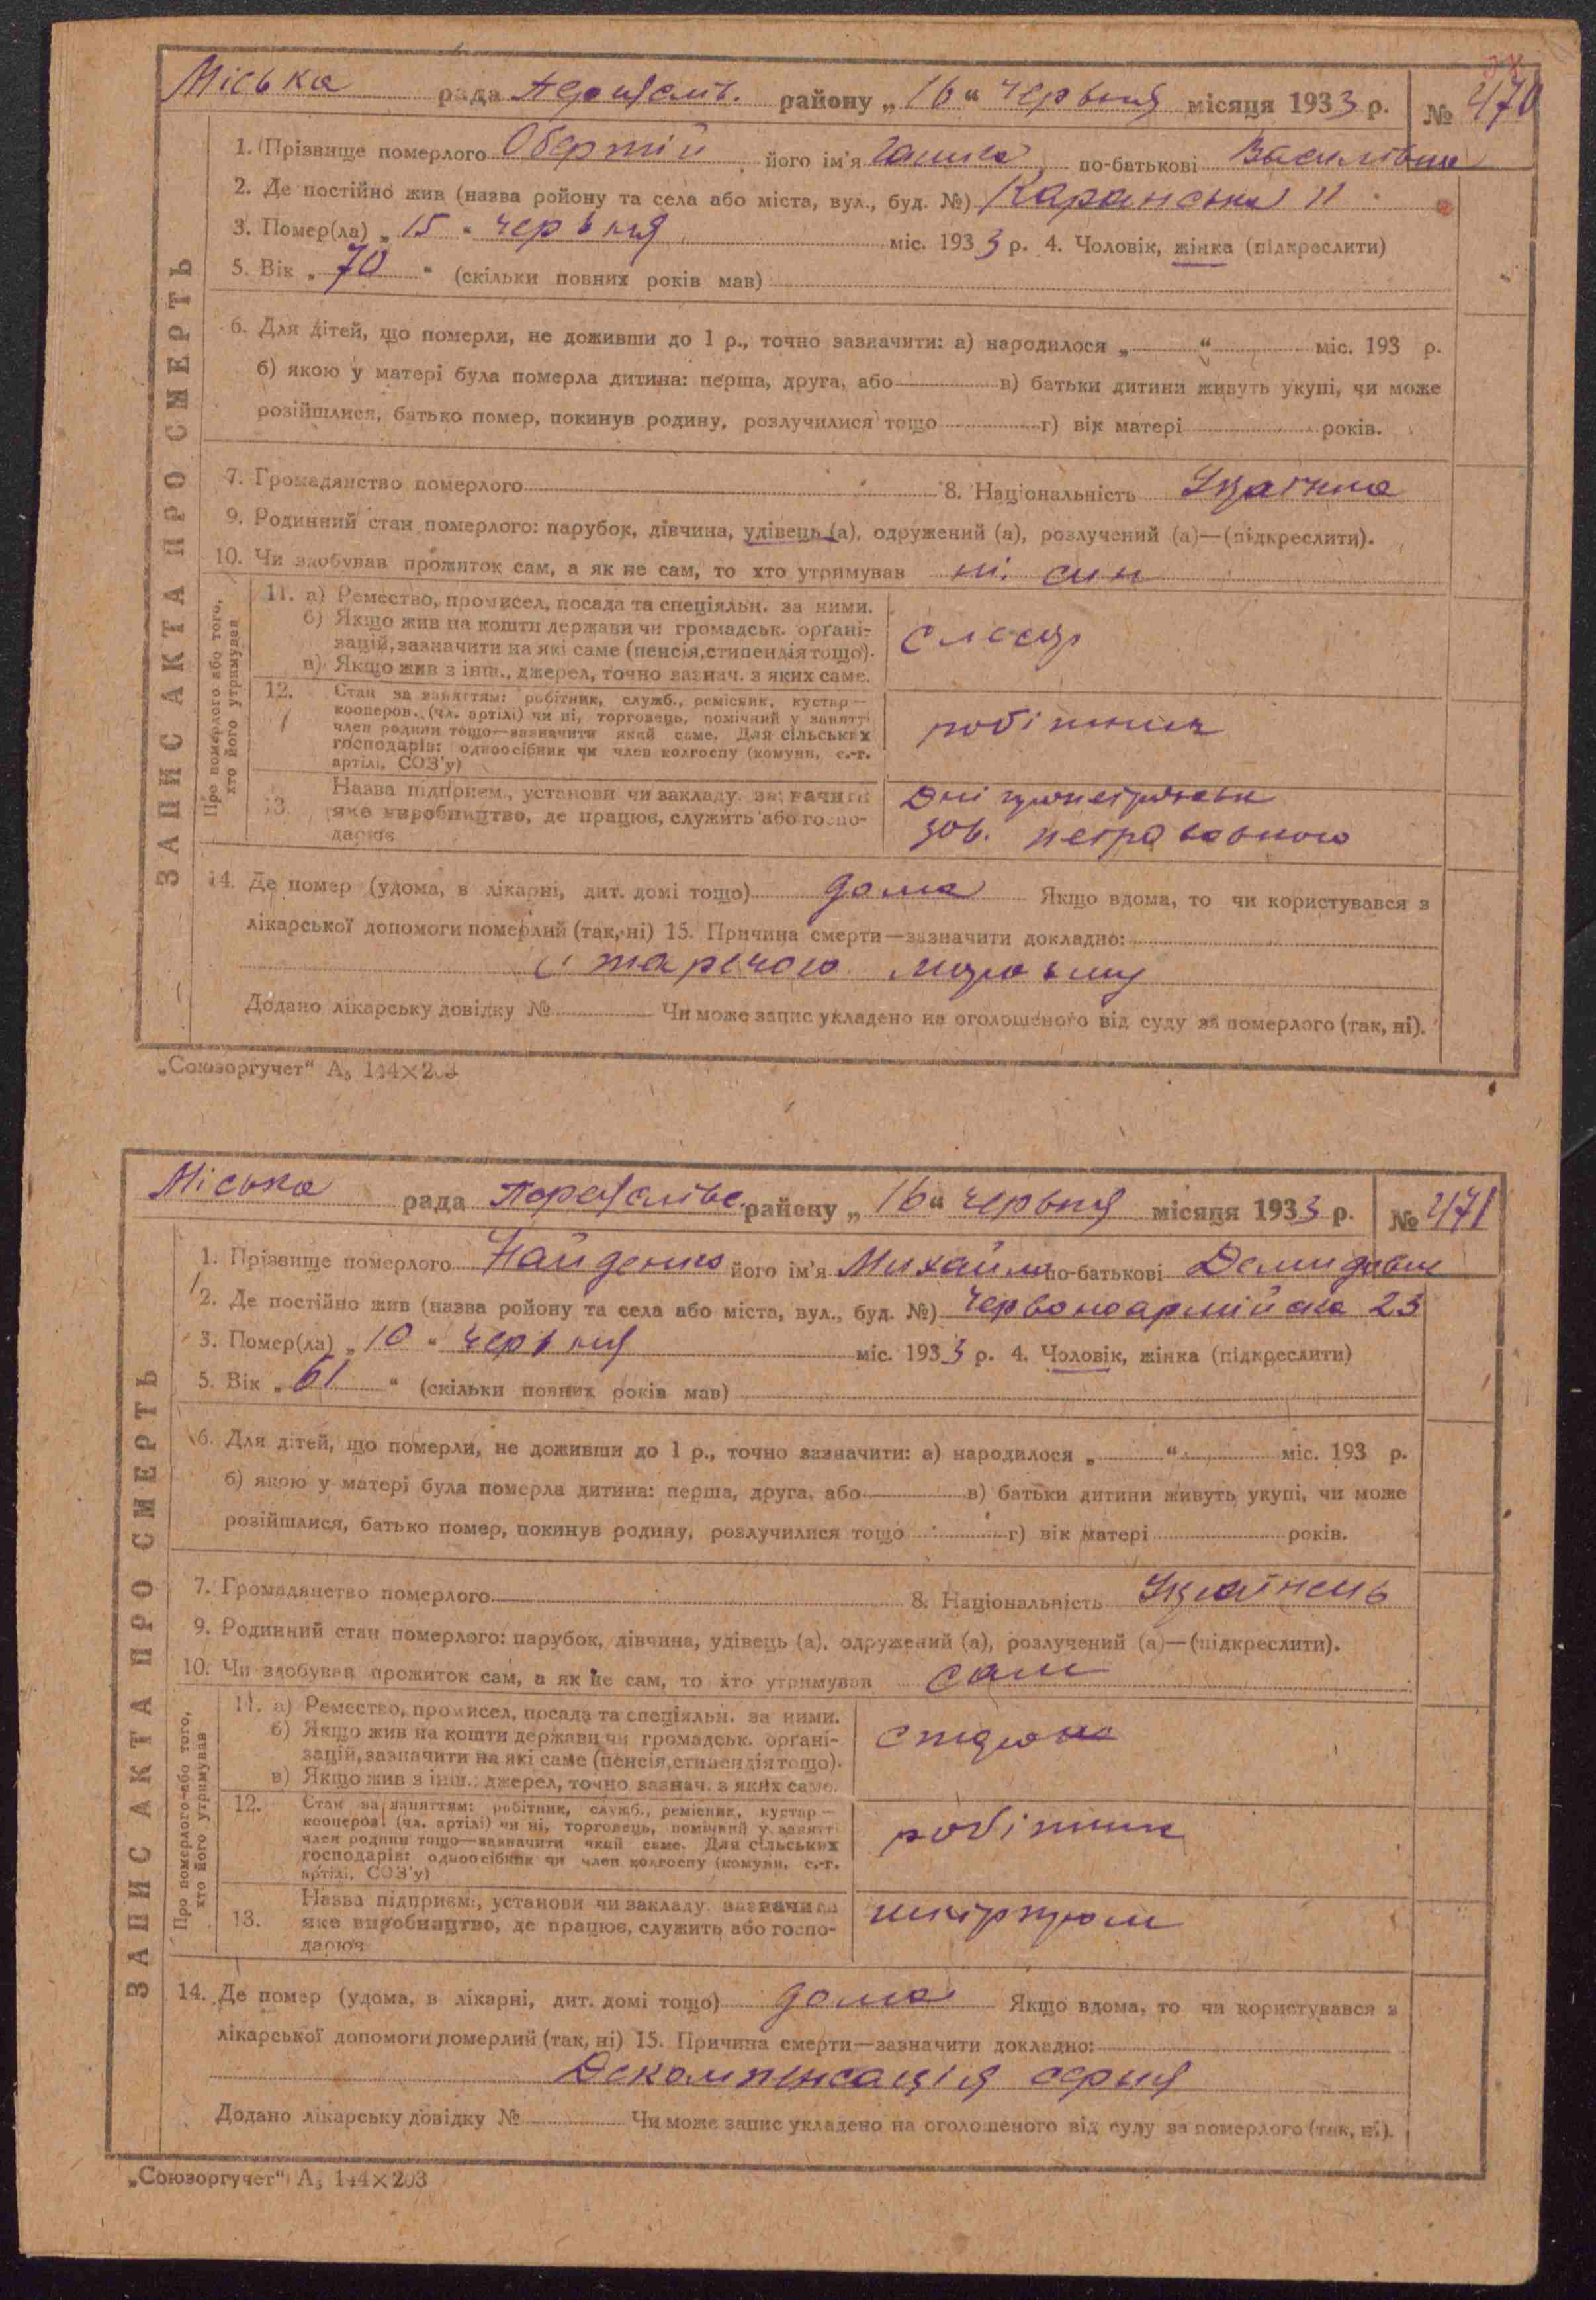 Міська рада Переяслів. району „16“ червня місяця 1933 р. № 470
ЗАПИС АКТА ПРО СМЕРТЬ
1. Прізвище померлого Обертій його ім'я по-батькові Василівна
2. Де постійно жив (назва району та села або міста, вул., буд. №) Каранська 11
3. Помер(ла) „15“ червня міс. 1933 р. 4. Чоловік, жінка (підкреслити)
5. Вік „70“ (скільки повних років мав)
6. Для дітей, що померли, не доживши до 1 р., точно зазначити: а) народилося „ “ міс. 193 р.
б) якою у матері була померла дитина: перша, друга, або в) батьки дитини живуть укупі, чи може
розійшлися, батько помер, покинув родину, розлучилися тощо г) вік матері років.
7. Громадянство померлого 8. Національність Україна
9. Родинний стан померлого: парубок, дівчина, удівець (а), одружений (а), розлучений (а)—(підкреслити).
10. Чи здобував прожиток сам, а як не сам, то хто утримував ні. син
Про померлого або того, хто його утримував
11. а) Ремество, промисел, посада та спеціяльн. за ними.
б) Якщо жив на кошти держави чи громадськ. орґані-
зацій, зазначити на які саме (пенсія, стипендія тощо).
в) Якщо жив з інш., джерел, точно зазнач. з яких саме.
слесар
12. Стан за заняттям: робітник, служб., ремісник, кустар—
кооперов. (чл. артілі) чи ні, торговець, помічний у занятті
член родини тощо—зазначити який саме. Для сільських
господарів: одноосібник чи член колгоспу (комуни, с.-г.
артілі, СОЗ'у)
робітник
13. Назва підприєм., установи чи закладу. зазначити
яке виробництво, де працює, служить або госпо-
дарює
зав. Петровського
14. Де помер (удома, в лікарні, дит. домі тощо) дома Якщо вдома, то чи користувався з
лікарської допомоги померлий (так, ні) 15. Причина смерти—зазначити докладно:
старечого
Додано лікарську довідку № Чи може запис укладено на оголошеного від суду за померлого (так, ні).
„Союзоргучет“ А₅ 144×203
Міська рада Переяслівс. району „16“ червня місяця 1933 р. № 471
ЗАПИС АКТА ПРО СМЕРТЬ
1. Прізвище померлого Найденко його ім'я Михайло по-батькові Демидович
2. Де постійно жив (назва району та села або міста, вул., буд. №) Червоноармійська 23
3. Помер(ла) „10“ червня міс. 1933 р. 4. Чоловік, жінка (підкреслити)
5. Вік „61“ (скільки повних років мав)
6. Для дітей, що померли, не доживши до 1 р., точно зазначити: а) народилося „ “ міс. 193 р.
б) якою у матері була померла дитина: перша, друга, або в) батьки дитини живуть укупі, чи може
розійшлися, батько помер, покинув родину, розлучилися тощо г) вік матері років.
7. Громадянство померлого 8. Національність Українець
9. Родинний стан померлого: парубок, дівчина, удівець (а), одружений (а), розлучений (а)—(підкреслити).
10. Чи здобував прожиток сам, а як не сам, то хто утримував сам
Про померлого або того, хто його утримував
11. а) Ремество, промисел, посада та спеціяльн. за ними.
б) Якщо жив на кошти держави чи громадськ. орґані-
зацій, зазначити на які саме (пенсія, стипендія тощо).
в) Якщо жив з інш., джерел, точно зазнач. з яких саме.
12. Стан за заняттям: робітник, служб., ремісник, кустар—
кооперов. (чл. артілі) чи ні, торговець, помічний у занятті
член родини тощо—зазначити який саме. Для сільських
господарів: одноосібник чи член колгоспу (комуни, с.-г.
артілі, СОЗ'у)
робітник
13. Назва підприєм., установи чи закладу. зазначити
яке виробництво, де працює, служить або госпо-
дарює
шкірпром
14. Де помер (удома, в лікарні, дит. домі тощо) дома Якщо вдома, то чи користувався з
лікарської допомоги померлий (так, ні) 15. Причина смерти—зазначити докладно:
Декомпенсація серця
Додано лікарську довідку № Чи може запис укладено на оголошеного від суду за померлого (так, ні).
„Союзоргучет“ А₅ 144×203